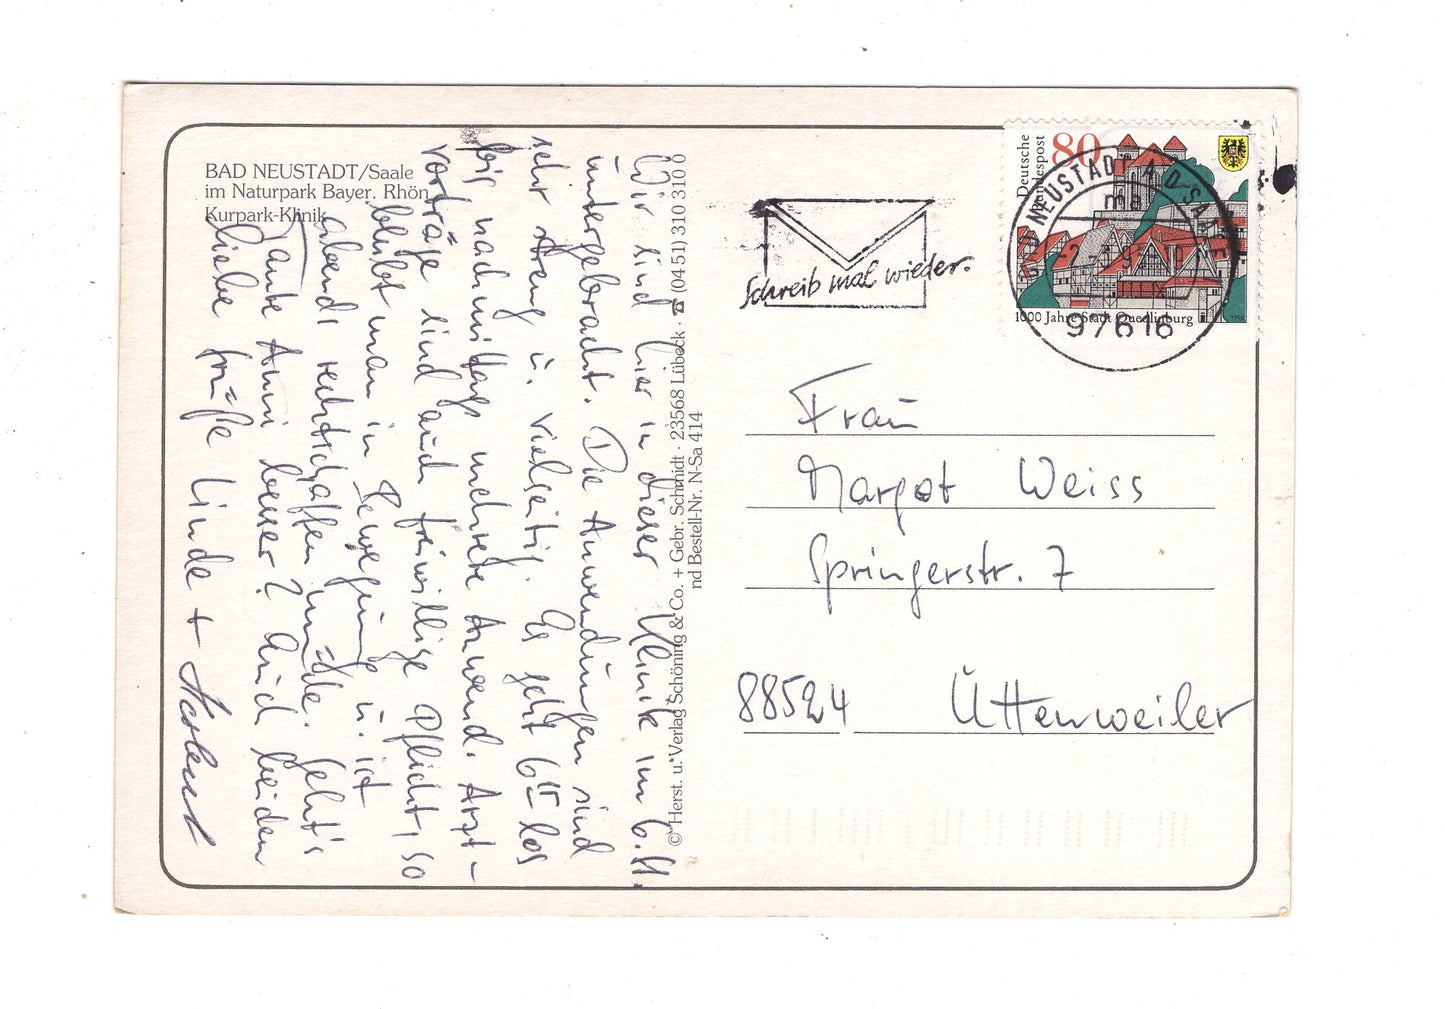 BAD NEUSTADT/Saale
im Naturpark Bayer. Rhön
Kurpark-Klinik
Wir sind hier in dieser Klinik im 6. St.
untergebracht. Die Anwendungen sind
sehr streng u. vielseitig. Es geht 6 los
bis nachmittags mehrere Anwend. Arzt-
vorträge sind auch freiwillige Pflicht, so
bleibt man in Bewegung u. ist
abends rechtschaffen müde. Geht's
Tante Anni besser? Euch beiden
liebe Grüße Linde +
© Herst. u. Verlag Schöning & Co. + Gebr. Schmidt · 23568 Lübeck · ☎ (04 51) 310 310 0
nd Bestell-Nr. N-Sa 414
Schreib mal wieder.
Deutsche
Bundespost
80
1000 Jahre Stadt Quedlinburg
1994
NEUSTADT A D SAALE
ma
97616
Frau
Margot Weiss
Springerstr. 7
88524 Uttenweiler